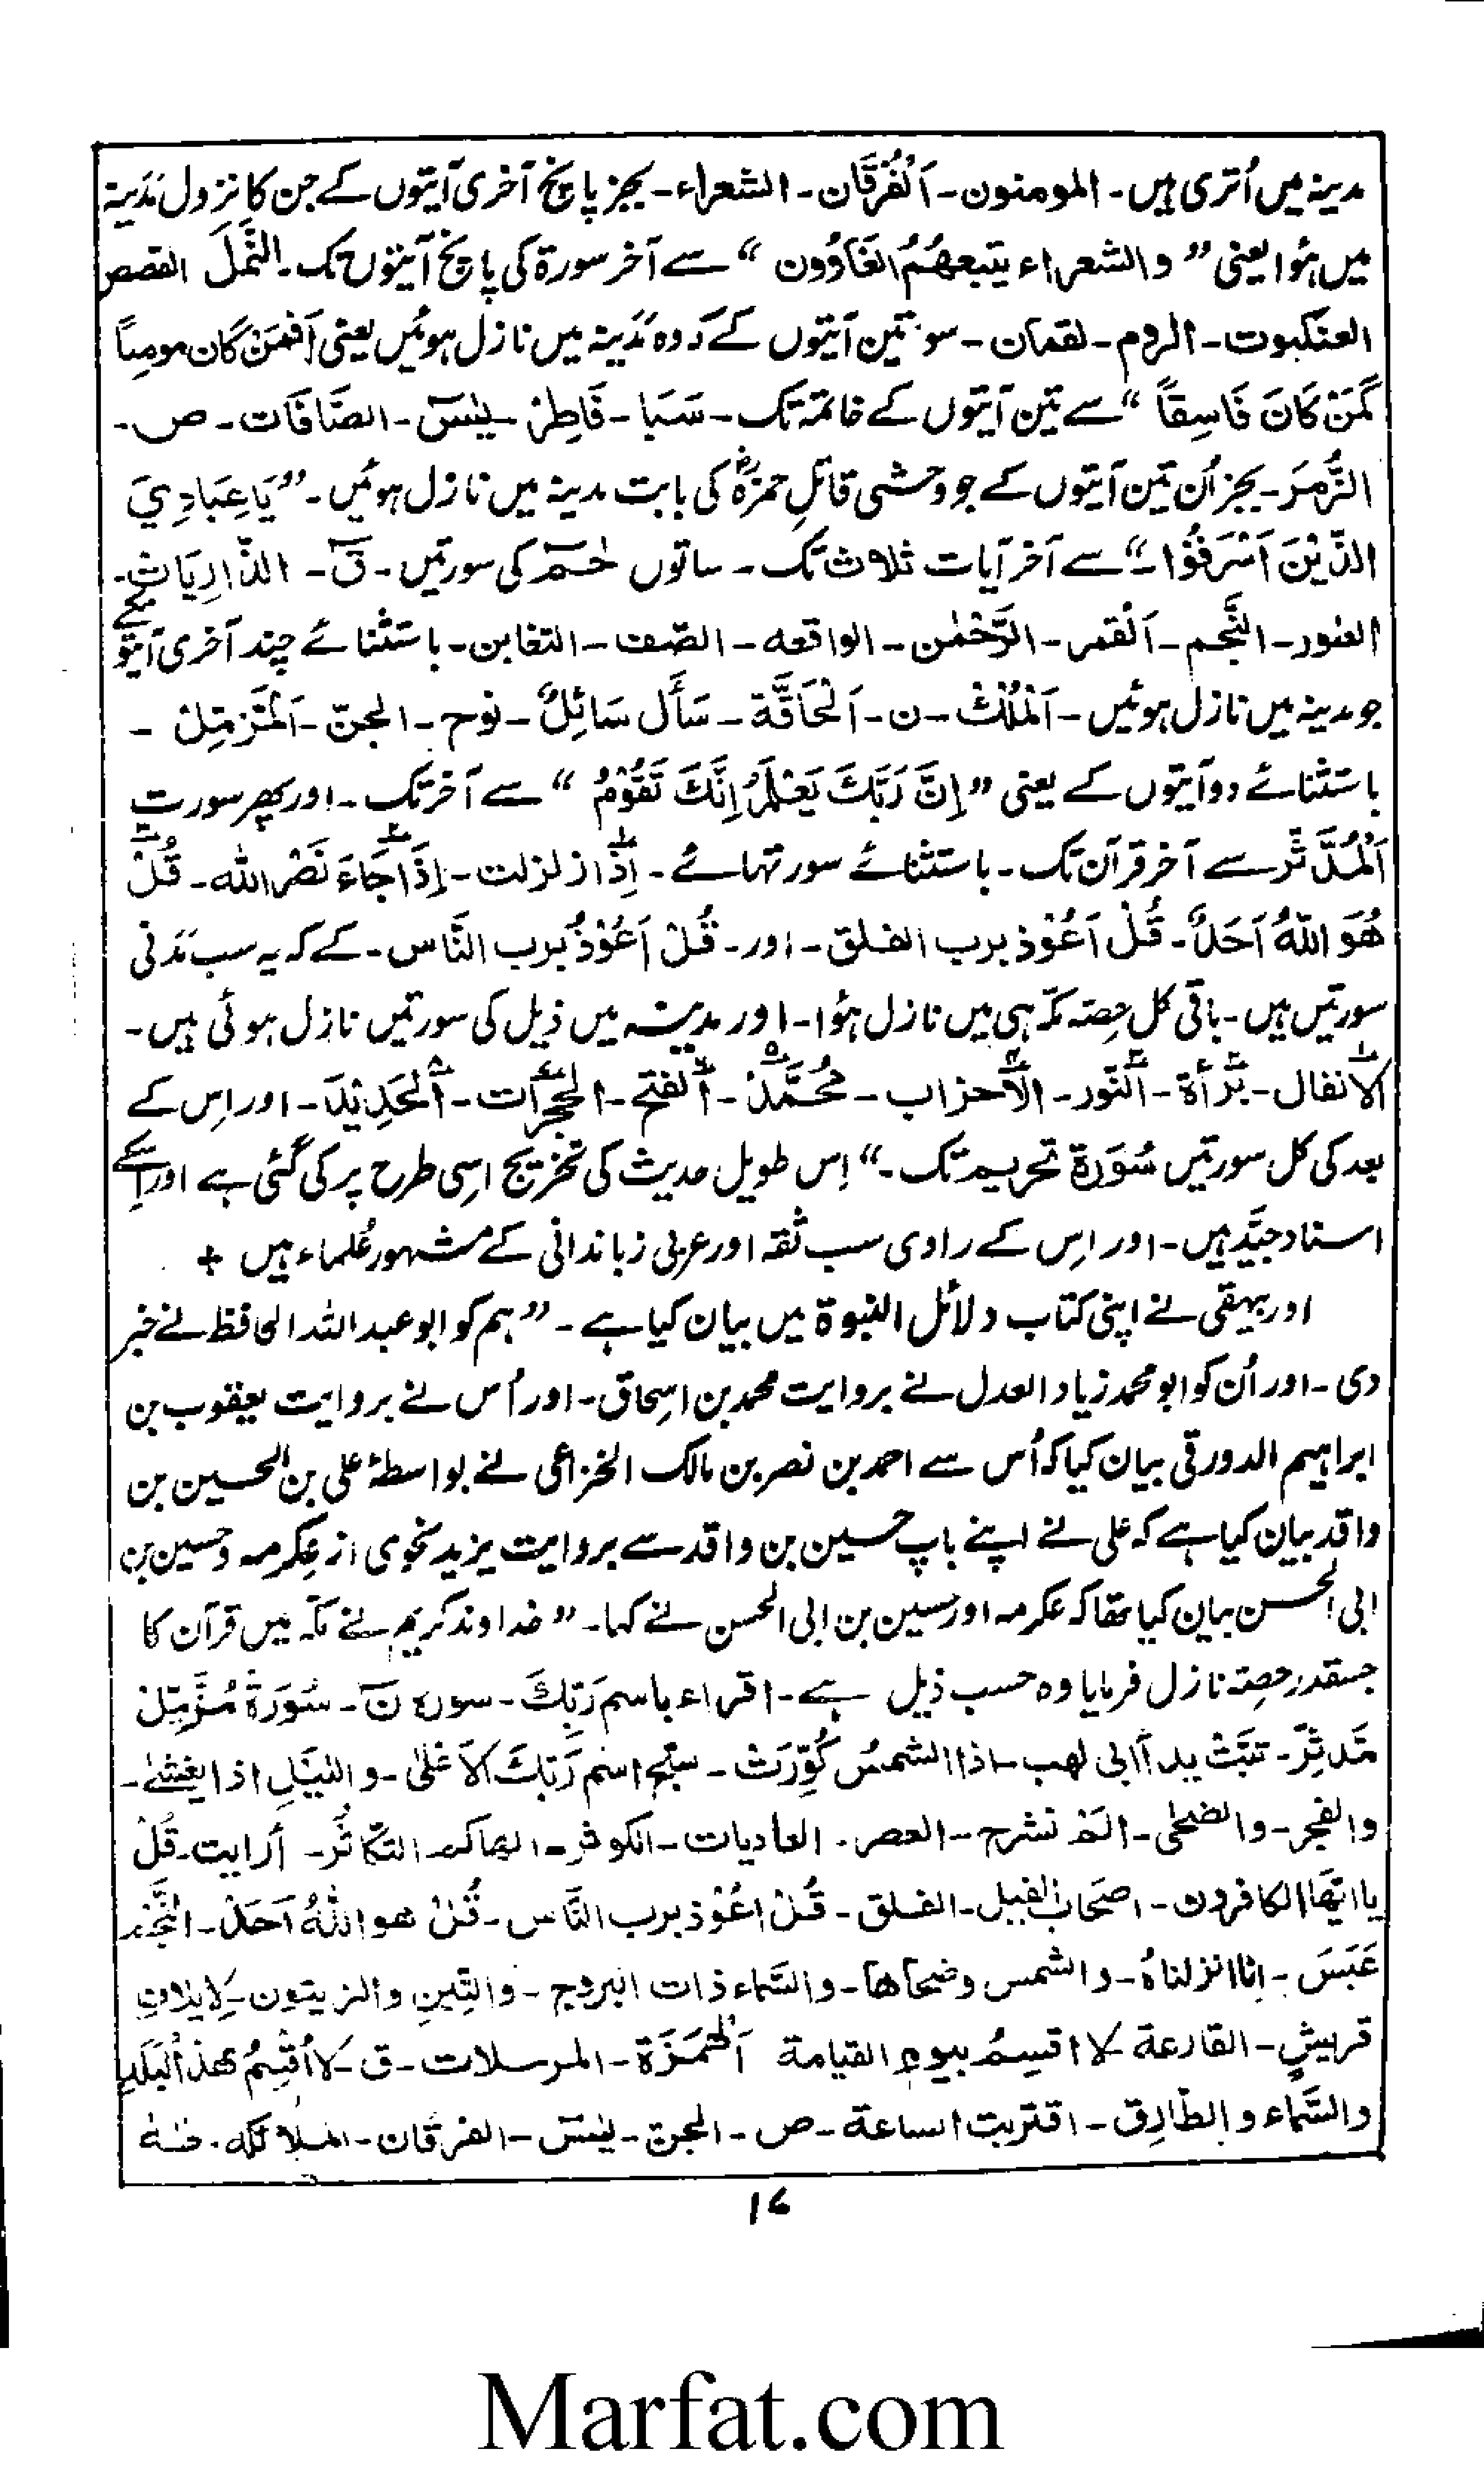 مدینہ میں اُتری ہیں۔ المومنون۔ اَلْفُرقَان۔ الشعراء۔ بجز پانچ آخری آیتوں کے جن کا نزول مَدَینہ
میں ہُوا یعنی ” والشعراء یتبعھُمُ الغَاوُون “ سے آخر سورۃ کی پانچ آیتوں تک۔ النَّمَلَ القصص
العنکبوت۔ الروم۔ لقمان۔ سو تین آیتوں کے کہ وہ مَدَینہ میں نازل ہوئیں یعنی اَفمَنْ کَان مومِناً
کَمَنْ کَانَ فَاسِقاً “ سے تین آیتوں کے خاتمہ تک۔ سَبَا۔ فَاطِرْ۔ یٰسٓ۔ الصَّافَات۔ ص۔
الزُّمَرَ۔ بجز اُن تین آیتوں کے جو وحشی قاتلِ حمزہؓ کی بابت مدینہ میں نازل ہوئیں۔ ” یَا عِبَادِيَ
الذَّیْنَ اَسْرَفُوْا ۔“ سے آخر آیات ثلاث تک۔ ساتوں حٰمٓ کی سورتیں۔ قٓ۔ الذّارِیَات۔
الطور۔ النَّجم۔ اَلْقمر۔ الرَّحْمٰن۔ الواقعہ۔ الصّف۔ التغابن۔ باستثنائے چند آخری آیتوں کے
جو مدینہ میں نازل ہوئیں۔ اَلْمُلْكْ۔ ن۔ اَلْحَاقَّة۔ سَأَل سَائِلٌ۔ نوح۔ الجنّ۔ اَلْمُزَّمِّلْ ۔
باستثنائے دو آیتوں کے یعنی ” اِنَّ رَبَّكَ یَعْلَمُ اِنَّكَ تَقُوْمُ “ سے آخر تک۔ اور پھر سورت
اَلْمُدَّثِّر سے آخر قرآن تک۔ باستثنائے سورتہائے۔ اِذَا زلزلت۔ اِذَا جَاءَ نَصْرُ اللہ۔ قُلْ
ھُوَ اللہُ اَحَدٌ۔ قُلْ اَعُوْذ برب الفلق۔ اور۔ قُلْ اَعُوْذُ برب النَّاس۔ کے کہ یہ سب مَدَنی
سورتیں ہیں۔ باقی کل حِصّہ مکّہ ہی میں نازل ہُوا۔ اور مدینہ میں ذیل کی سورتیں نازل ہوئی ہیں۔
الانفال۔ بَرْأۃ۔ النّور۔ الاَحزاب۔ مُحَمَّدْ۔ اَلفتح۔ الحجرَات۔ اَلْحَدِیْدَ۔ اور اِس کے
بعد کی کل سورتیں سُوَرَۃ تحریم تک۔“ اِس طویل حدیث کی تخریج اسی طرح پر کی گئی ہے اور اِسکے
اسناد جیّد ہیں۔ اور اِس کے راوی سب ثقہ اور عربی زباندانی کے مشہور عُلماء ہیں +
اور بیہقی نے اپنی کتاب دلائل النبوۃ میں بیان کیا ہے۔ ” ہم کو ابو عبد اللہ الحافظ نے خبر
دی۔ اور اُن کو ابو محمد زیاد العدل نے بروایت محمد بن اسحاق۔ اور اُس نے بروایت یعقوب بن
ابراہیم الدورقی بیان کیا کہ اُس سے احمد بن نصر بن مالک الخزاعی نے بواسطۂ علی بن الحسین بن
واقد بیان کیا ہے کہ علی نے اپنے باپ حسین بن واقد سے بروایت یزید نحوی از عِکرمہ و حسین بن
ابی الحسن بیان کیا تھا کہ عکرمہ اور حسین بن ابی الحسن نے کہا۔ ” خداوند کریم نے مکّہ میں قرآن کا
جسقدر حِصّہ نازل فرمایا وہ حسب ذیل ہے۔ اقراء باسم رَبِّكَ۔ سورہ نٓ۔ سُوَرَۃ مُزَّمِّلْ
مَّدثِّر۔ تبَّتْ یدآ ابی لھب۔ اذا الشمسُ کُوِّرَتْ۔ سبّح اسْم رَبّكَ الاَعْلیٰ۔ و اللیْلِ اذا یغشیٰ۔
والفجر۔ والضحٰی۔ الَمْ نشرح۔ العصر۔ العادیات۔ الکوثر۔ الھاکم التکَاثُر۔ أرایت۔ قُلْ
یا ایّھا الکافرون۔ اصحَاب الفیل۔ الفلق۔ قُلْ اعُوْذ برب النَّاس۔ قُلْ ھو اللہُ اَحَدْ۔ النَّجْم
عَبَسَ۔ انا انزلناہُ۔ والشمس وضحاھا۔ والسّماء ذات البروج۔ والتِّینِ والزیتون۔ لِایلافِ
قریشٍ۔ القارعۃ لا اقسِمُ بیومِ القیامۃ اَلْھُمَزَۃ۔ المرسلات۔ ق۔ لا اُقْسِمُ بھٰذ اَلبَلَدِ
والسَّماء والطّارِق۔ اقتربت الساعۃ۔ ص۔ الجن۔ یٰسٓ۔ الفرقان۔ الملائکہ۔ طٰہٰ
۱۷
Marfat.com